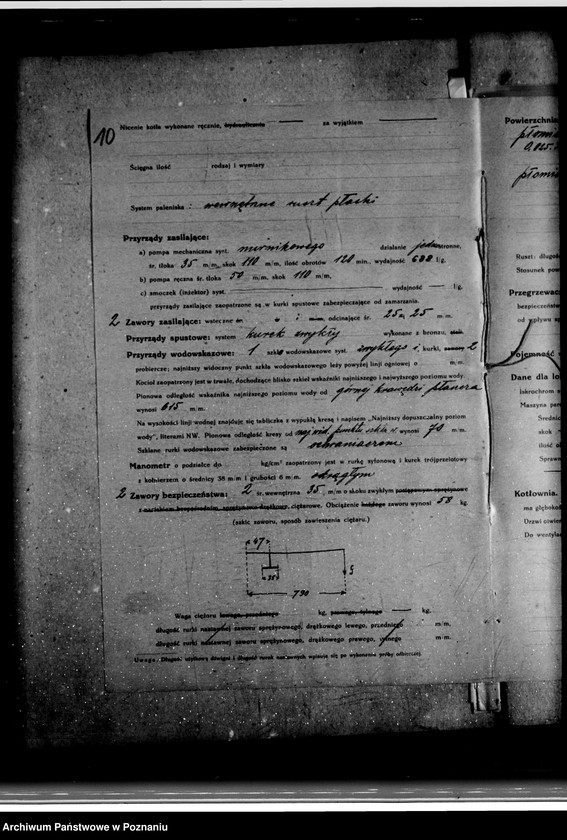 10
Nitenie kotła wykonane ręcznie, hydraulicznie za wyjątkiem
Ścięgna ilość rodzaj i wymiary
System paleniska: wewnętrzna ruszt płaski
Przyrządy zasilające:
a) pompa mechaniczna syst. nurnikowego działanie jednostronne,
śr. tłoka 35 m/m, skok 110 m/m, ilość obrotów 120 min., wydajność l/g,
b) pompa ręczna śr. tłoka 50 m/m, skok 110 m/m,
c) smoczek (inżektor) syst. wydajność l/g,
przyrządy zasilające zaopatrzone są w kurki spustowe zabezpieczające od zamarzania.
2 Zawory zasilające: wsteczne śr. m/m, odcinające śr. 25 i 25 m/m.
Przyrządy spustowe: system kurek zwykły wykonane z bronzu,
Przyrządy wodowskazowe: 1 szkło wodowskazowe syst. zwykłego i, kurki, zawory 2
probiercze; najniższy widoczny punkt szkła wodowskazowego leży powyżej linji ogniowej o m/m.
Kocioł zaopatrzony jest w trwałe, dochodzące blisko szkieł wskaźniki najniższego i najwyższego poziomu wody.
Pionowa odległość wskaźnika najniższego poziomu wody od górnej krawędzi
wynosi 615 m/m.
Na wysokości linji wodnej znajduje się tabliczka z wypukłą kresą i napisem „Najniższy dopuszczalny poziom
wody", literami NW. Pionowa odległość kresy od najwid. punktu szkła w wynosi 70 m/m.
Szklane rurki wodowskazowe zabezpieczone są ochraniaczem
Manometr o podziałce do kg/cm² zaopatrzony jest w rurkę syfonową i kurek trójprzelotowy
z kołnierzem o średnicy 38 m/m i grubości 6 m/m. okrągłym
2 Zawory bezpieczeństwa: 2 śr. wewnętrzna 35 m/m o skoku zwykłym postępowym sprężynowe
z naciskiem bezpośrednim, sprężynowo drążkowy, ciężarowe. Obciążenie każdego zaworu wynosi 58 kg.
(szkic zaworu, sposób zawieszenia ciężaru.)
47
35
G
790
Waga ciężaru lewego, przedniego kg, prawego, tylnego kg,
długość rurki nastawnej zaworu sprężynowego, drążkowego lewego, przedniego m/m.
długość rurki nastawnej zaworu sprężynowego, drążkowego prawego, tylnego m/m.
Uwaga: Długość użytkową dźwigni i długość rurek nastawnych wpisuje się po wykonaniu próby odbiorczej.
Powierzchnia
0,025
Ruszt: długość
Stosunek pow
Przegrzewacz
bezpieczeństw
od wpływu sp
Pojemność
Dane dla lo
iskrochron s
Maszyna pa
Średni
skok
ilość o
Sprawn
Kotłownia.
ma głęboko
Drzwi otwier
Do wentylac
Archiwum Państwowe w Poznaniu